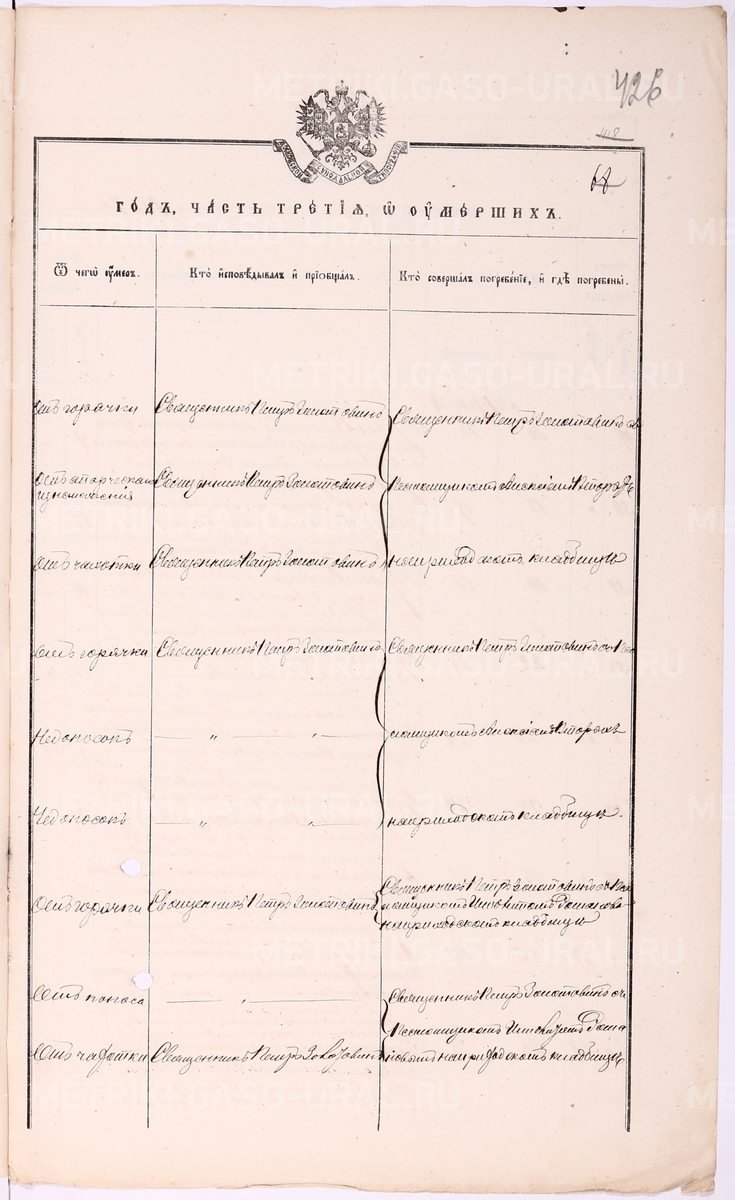 426
418
68
МОСКОВСКОЙ СѴНОДАЛЬНОЙ ТИПОГРАФІИ
ГО́ДЪ, ЧА́СТЬ ТРЕ́ТІѦ, Ѡ҆ ОУ҆МЕ́РШИХЪ.
Ѿ чегѡ̀ оу҆́меръ.
Кто̀ и҆сповѣ́дывалъ и҆ прїѻбща́лъ.
Кто̀ соверша́лъ погребе́нїе, и҆ гдѣ̀ погребены̀.
Отъ горячки
Священникъ Петръ Золотовинъ
Священникъ Петръ Золотавинъ съ
Отъ старческаго
изнеможения
Священникъ Петръ Золотовинъ
Псаломщикомъ Алексіемъ
Отъ чахотки
Священникъ Петръ Золотовинъ
на приходскомъ кладбищѣ
Отъ горячки
Священникъ Петръ Золотовинъ
Священникъ Петръ Золотовинъ съ Пса
Недоносокъ
— „ „ —
ломщикомъ Алексіемъ
Недоносокъ
— „ „ —
на приходскомъ кладбищѣ.
Отъ горячки
Священникъ Петръ Золотовинъ
Священникъ Петръ Золотовинъ съ Пса
ломщикомъ
на приходскомъ кладбищѣ
Отъ поноса
— „ —
Священникъ Петръ Золотовинъ съ
Псаломщикомъ
Отъ чахотки
Священникъ Петръ Золотовинъ
на приходскомъ кладбищѣ
METRIKI.GASO-URAL.RU